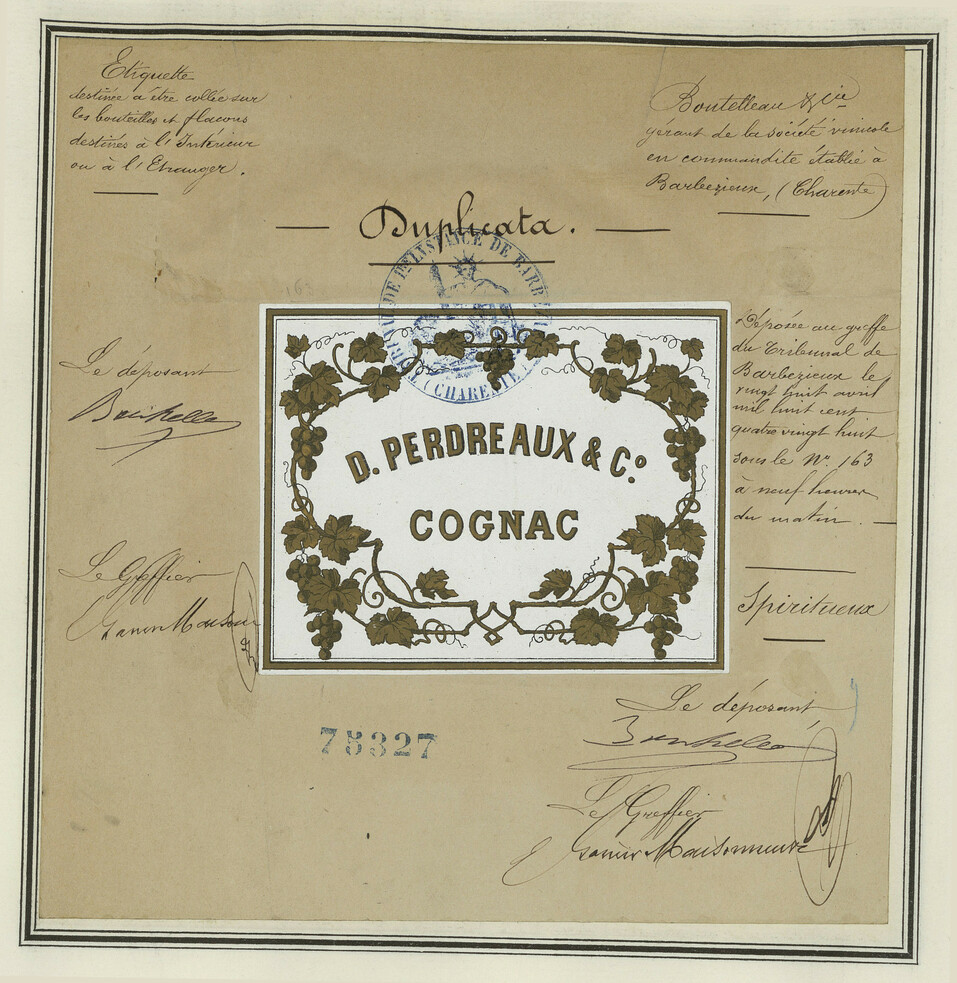 Etiquette
destinée à être collée sur
les bouteilles et flacons
destinés à l'Intérieur
ou à l'Etranger.
Boutelleau & Cie
gérant de la société vinicole
en commandite établie à
Barbezieux, (Charente)
— Duplicata. —
TRIBUNAL DE 1re INSTANCE DE BARBEZIEUX
(CHARENTE)
D. PERDREAUX & Co.
COGNAC
Déposée au greffe
du Tribunal de
Barbezieux le
vingt huit avril
mil huit cent
quatre vingt huit
sous le No. 163
à neuf heures
du matin. —
Spiritueux
Le déposant
Le Greffier
75327
Le déposant
Le Greffier
Maisonneuve